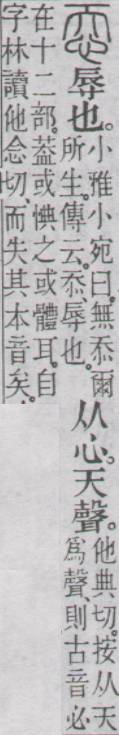 忝辱也。
小雅小宛曰。無忝爾
所生。傳云。忝、辱也。
从心。天聲。
他典切。按从天
爲聲、則古音必
在十二部。葢或㥏之或體耳。自
字林讀他念切、而失其本音矣。